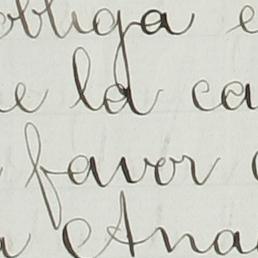 obliga e
e la ca
favor
Ana